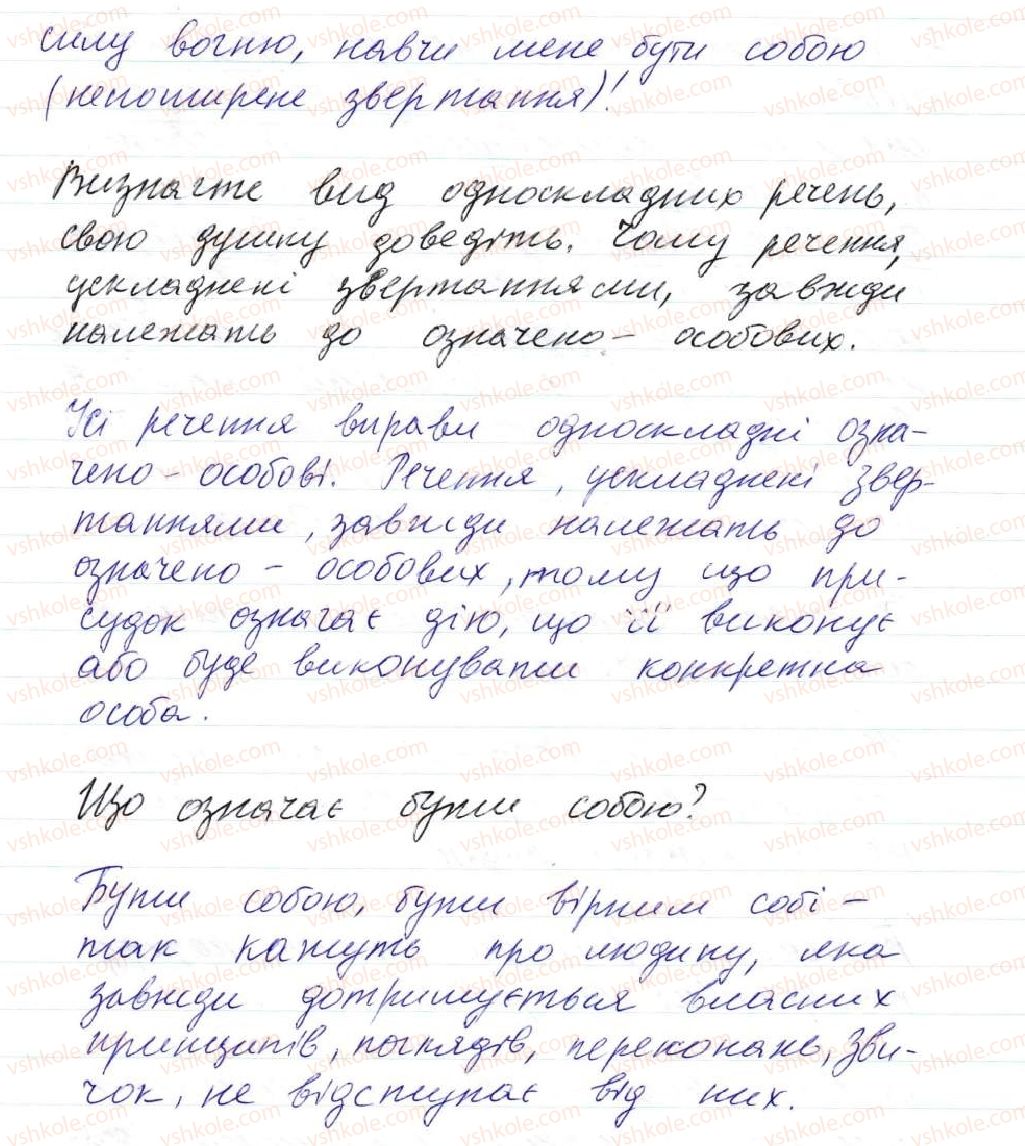 силу вогню, навчи мене бути собою
(непоширене звертання)!
Визначте вид односкладних речень,
свою думку доведіть. Чому речення,
ускладнені звертаннями, завжди
належать до означено - особових.
Усі речення вправи односкладні озна-
чено - особові. Речення, ускладнені звер-
таннями, завжди належать до
означено - особових, тому що при-
судок означає дію, що її виконує
або буде виконувати конкретна
особа.
Що означає бути собою?
Бути собою, бути вірним собі -
так кажуть про людину, яка
завжди дотримується власних
принципів, поглядів, переконань, зви-
чок, не відступає від них.